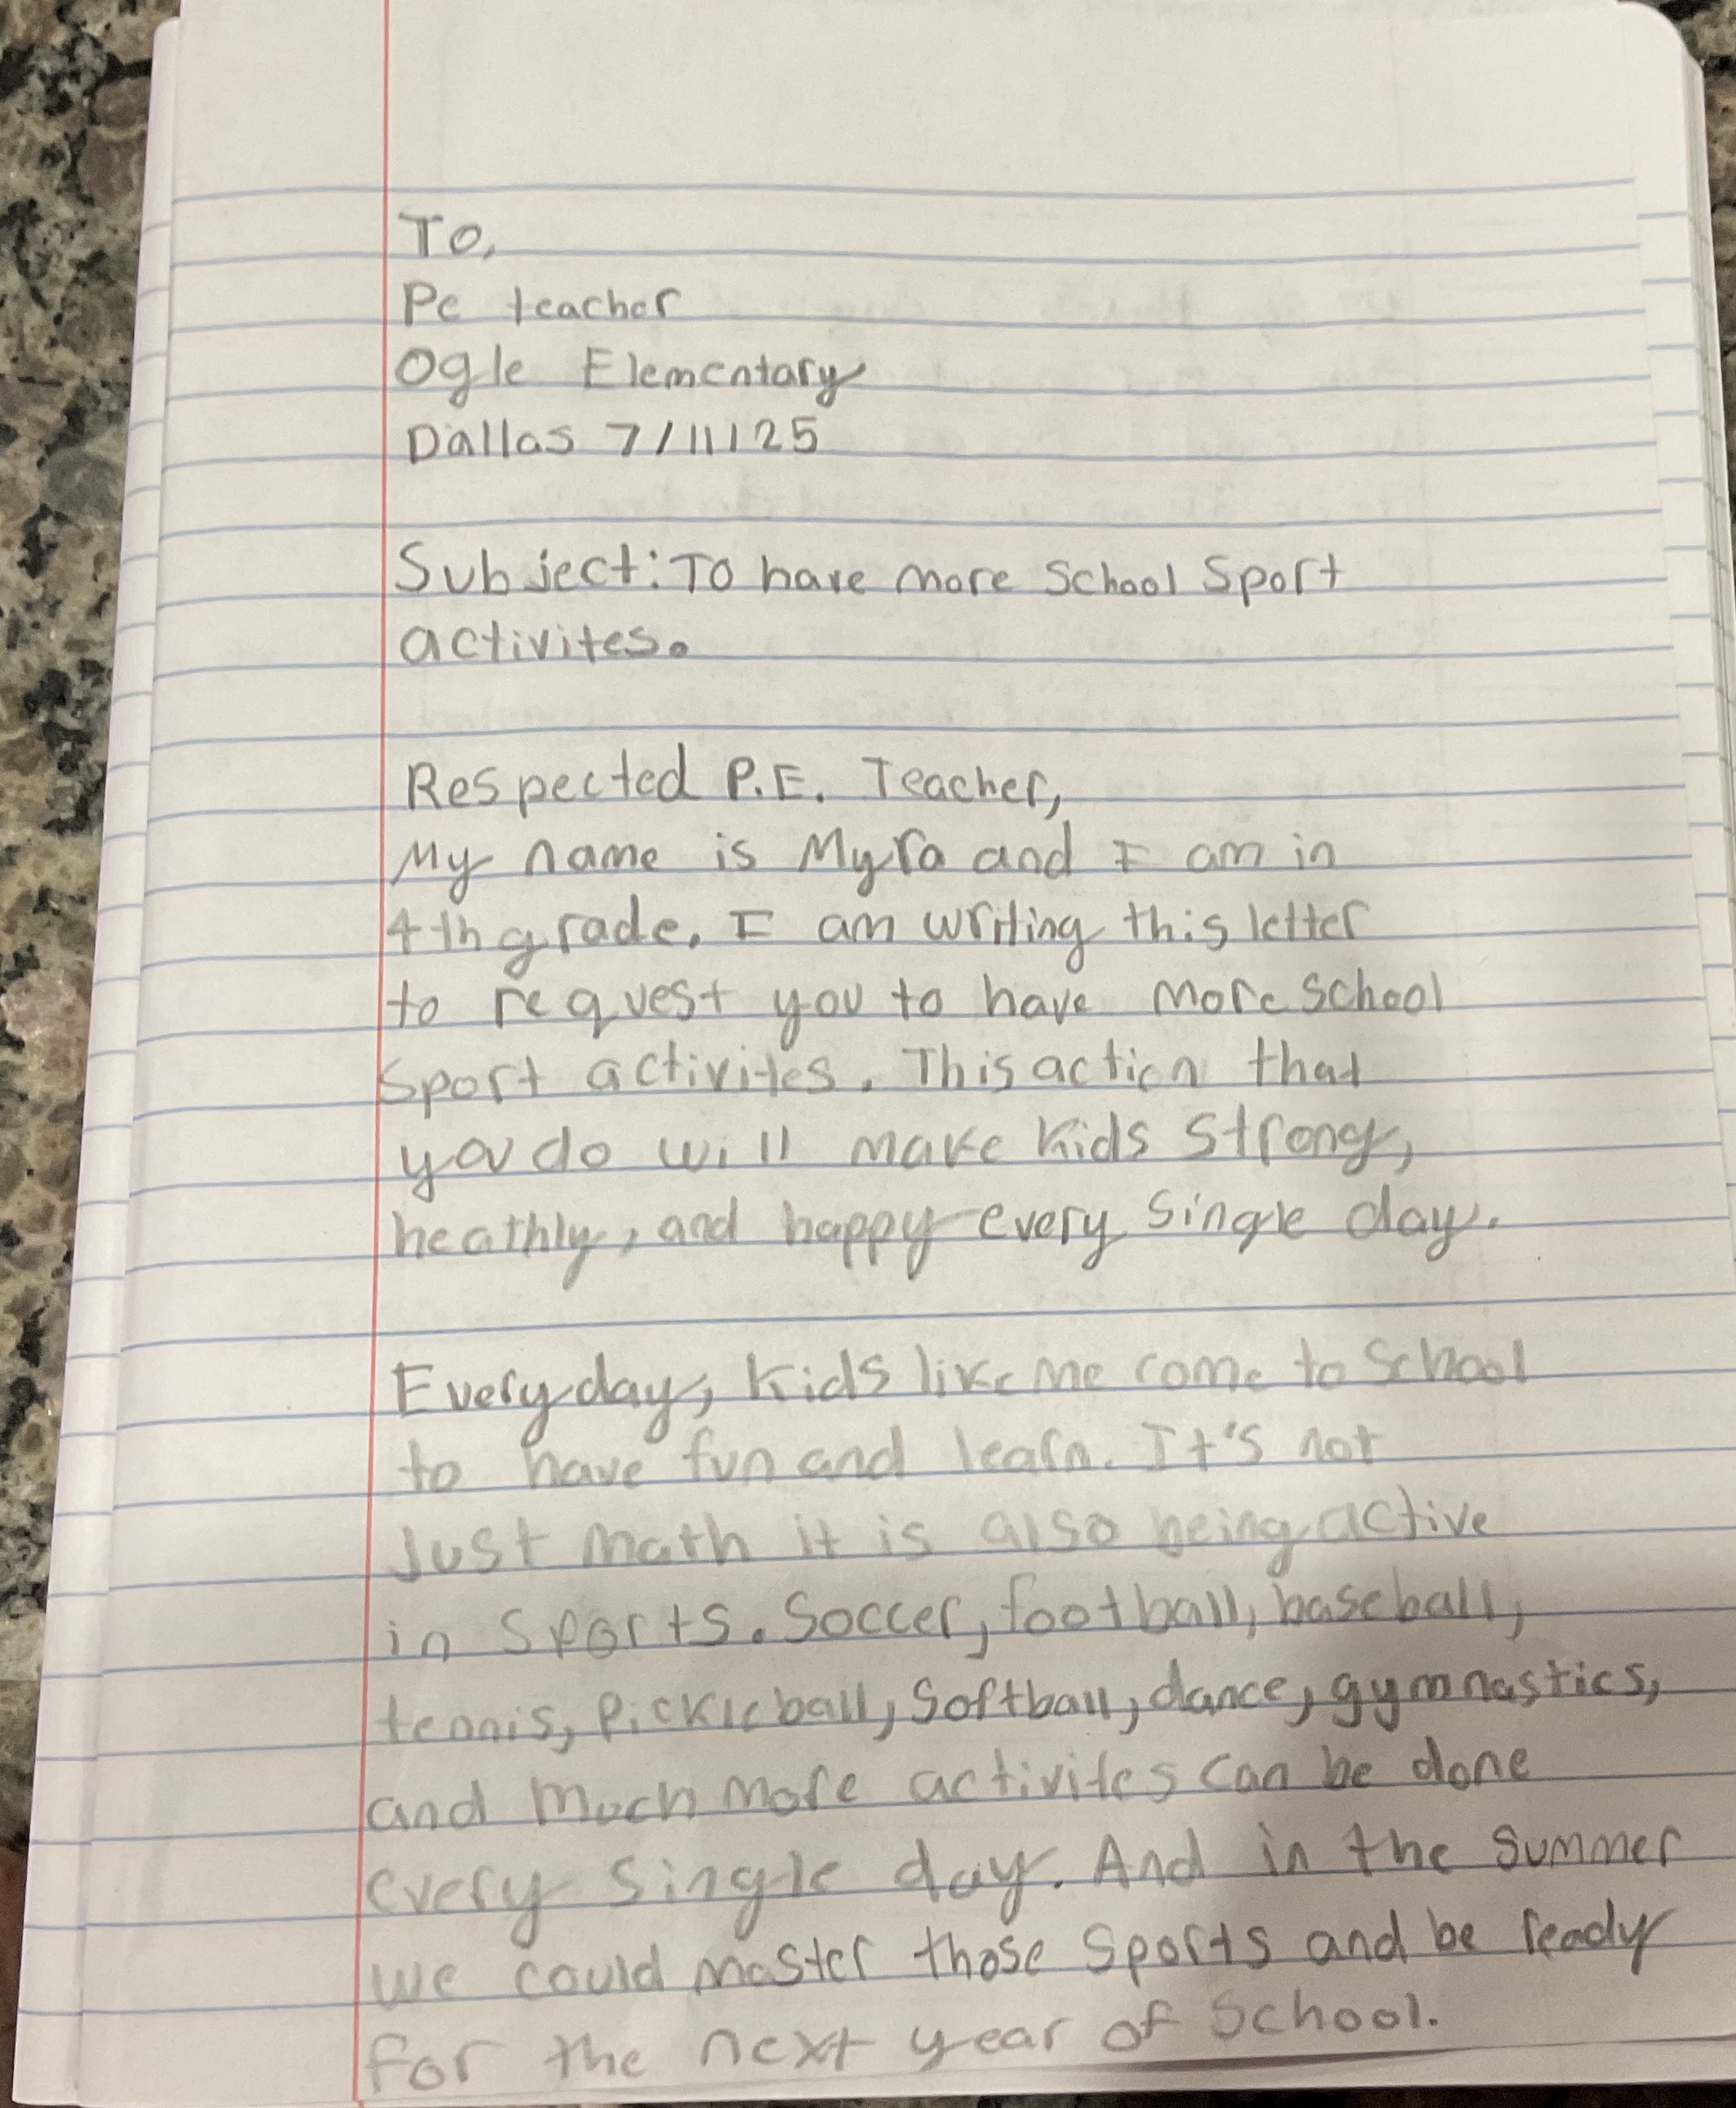 To,
Pe teacher
Ogle Elementary
Dallas 7/11/25
Subject: To have more School Sport
activites.
Respected P.E. Teacher,
My name is Myra and I am in
4th grade. I am writing this letter
to request you to have more school
sport activites. This action that
you do will make kids strong,
heathly, and happy every single day.
Everyday, kids like me come to school
to have fun and learn. It's not
Just math it is also being active
in sports. Soccer, football, baseball,
tennis, Pickleball, Softball, dance, gymnastics,
and much more activites can be done
every single day. And in the summer
we could master those sports and be ready
for the next year of School.